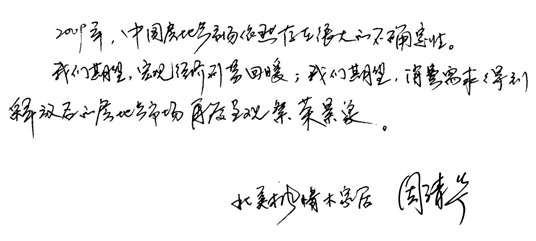 2009年，中国房地产市场依然存在很大的不确定性。
我们期望，宏观经济形势回暖；我们期望，消费需求得到
释放后的房地产市场再度呈现繁荣景象。
北美枫情木家居 周靖